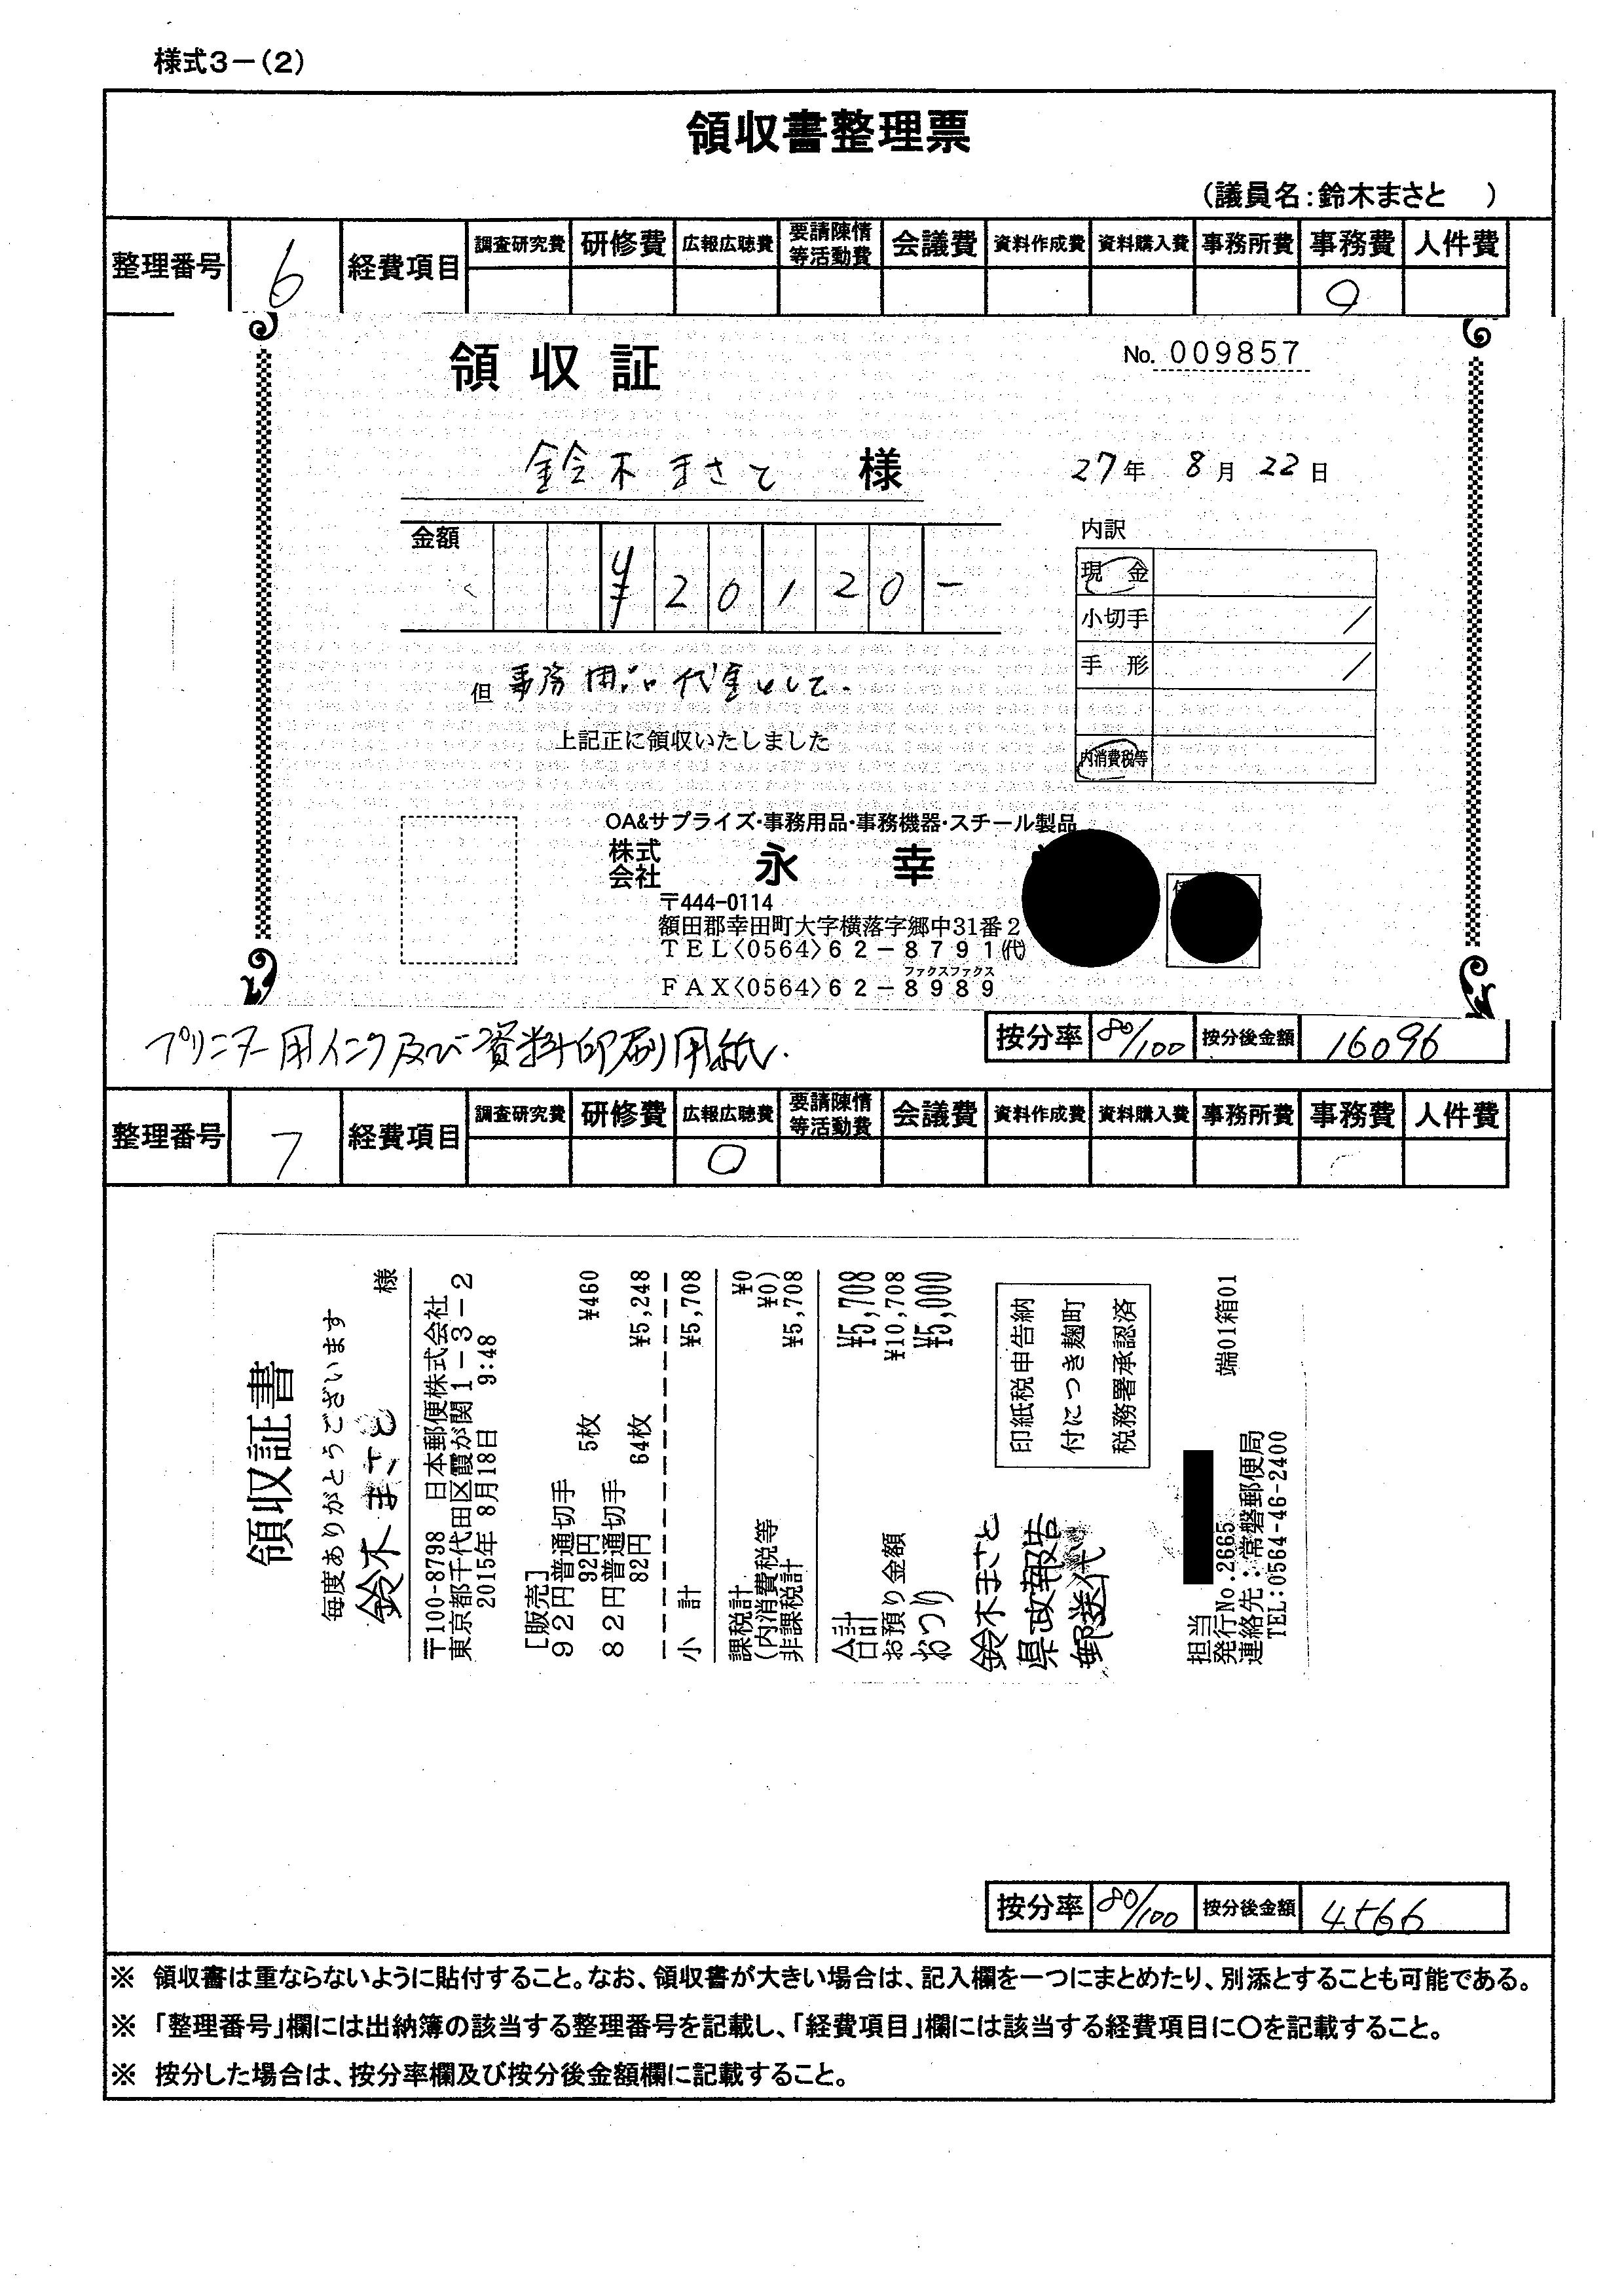 様式3－(2)
領収書整理票
(議員名:鈴木まさと )
整理番号 6 経費項目 調査研究費 研修費 広報広聴費 要請陳情等活動費 会議費 資料作成費 資料購入費 事務所費 事務費 人件費
○
領収証
No. 009857
鈴木まさと 様
27年 8月 22日
金額 ¥20120－
内訳
現金
小切手
手形
内消費税等
但 事務用品代金として.
上記正に領収いたしました
OA&サプライズ・事務用品・事務機器・スチール製品
株式会社 永幸
〒444-0114
額田郡幸田町大字横落字郷中31番2
TEL〈0564〉62－8791㈹
ファクスファクス
FAX〈0564〉62－8989
プリンター用インク及び資料印刷用紙.
按分率 80/100 按分後金額 16096
整理番号 7 経費項目 調査研究費 研修費 広報広聴費 要請陳情等活動費 会議費 資料作成費 資料購入費 事務所費 事務費 人件費
○
領収証書
毎度ありがとうございます
鈴木まさと 様
〒100-8798 日本郵便株式会社
東京都千代田区霞が関1－3－2
2015年 8月18日 9:48
[販売]
92円普通切手
92円 5枚 ¥460
82円普通切手
82円 64枚 ¥5,248
小計 ¥5,708
課税計 ¥0
(内消費税等 ¥0)
非課税計 ¥5,708
合計 ¥5,708
お預り金額 ¥10,708
おつり ¥5,000
鈴木まさと
県政報告
郵送代
印紙税申告納
付につき麹町
税務署承認済
担当
発行No.2665 端01箱01
連絡先:常磐郵便局
TEL:0564-46-2400
按分率 80/100 按分後金額 4566
※ 領収書は重ならないように貼付すること。なお、領収書が大きい場合は、記入欄を一つにまとめたり、別添とすることも可能である。
※ 「整理番号」欄には出納簿の該当する整理番号を記載し、「経費項目」欄には該当する経費項目に○を記載すること。
※ 按分した場合は、按分率欄及び按分後金額欄に記載すること。